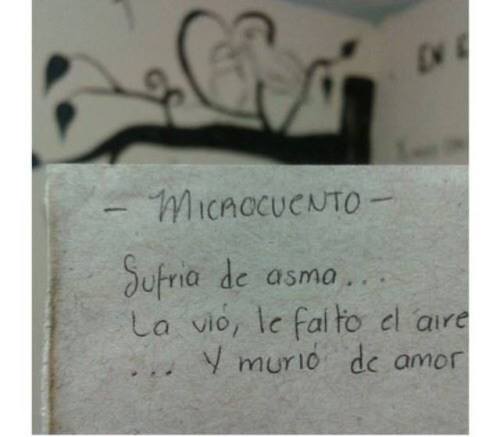 EN E
- MICROCUENTO -
Sufria de asma...
La vió, le falto el aire
... Y murió de amor